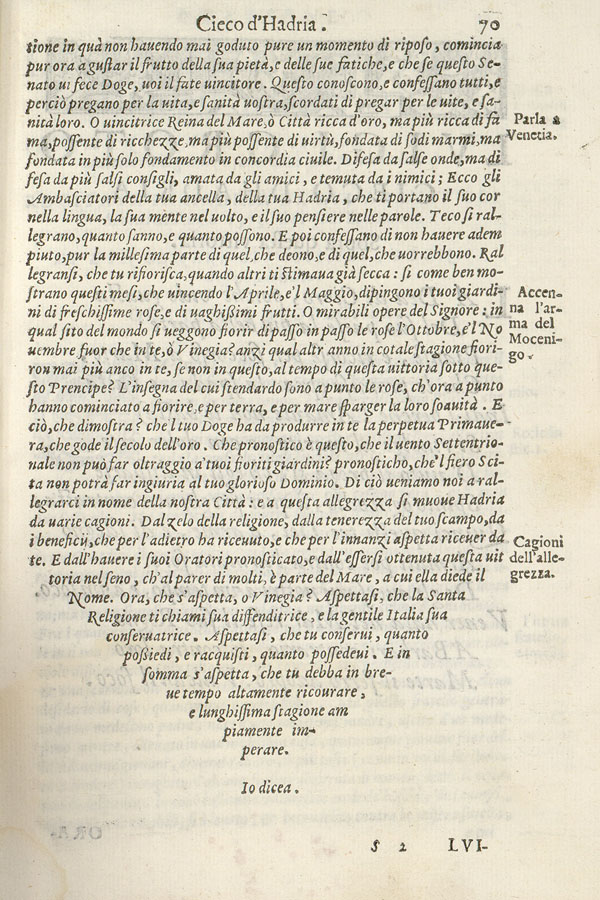 Cieco d'Hadria. 70
tione in quà non hauendo mai goduto pure un momento di riposo, comincia
pur ora a gustar il frutto della sua pietà, e delle sue fatiche, e che se questo Se-
nato ui fece Doge, uoi il fate uincitore. Questo conoscono, e confessano tutti, e
perciò pregano per la uita, e sanità uostra, scordati di pregar per le uite, e sa-
nità loro. O uincitrice Reina del Mare, ò Città ricca d'oro, ma più ricca di fa
Parla a
ma, possente di ricchezze, ma più possente di uirtù, fondata di sodi marmi, ma
Venetia.
fondata in più solo fondamento in concordia ciuile. Difesa da salse onde, ma di
fesa da più salsi consigli, amata da gli amici, e temuta da i nimici; Ecco gli
Ambasciatori della tua ancella, della tua Hadria, che ti portano il suo cor
nella lingua, la sua mente nel uolto, e il suo pensiere nelle parole. Teco si ral-
legrano, quanto sanno, e quanto possono. E poi confessano di non hauere adem
piuto, pur la millesima parte di quel, che deono, e di quel, che uorrebbono. Ral
legransi, che tu rifiorisca, quando altri ti stimaua già secca: si come ben mo-
strano questi mesi, che uincendo l'Aprile, e'l Maggio, dipingono i tuoi giardi-
Accen-
ni di freschissime rose, e di uaghissimi frutti. O mirabili opere del Signore: in
na l'ar-
qual sito del mondo si ueggono fiorir di passo in passo le rose l'Ottobre, e'l No
ma del
uembre fuor che in te, ò Vinegia? anzi qual altr anno in cotale stagione fiori-
Moceni-
ron mai più anco in te, se non in questo, al tempo di questa uittoria sotto que-
go.
sto Prencipe? L'insegna del cui stendardo sono a punto le rose, ch'ora a punto
hanno cominciato a fiorire, e per terra, e per mare sparger la loro soauità. E
ciò, che dimostra? che l tuo Doge ha da produrre in te la perpetua Primaue-
ra, che gode il secolo dell'oro. Che pronostico è questo, che il uento Settentrio-
nale non può far oltraggio a' tuoi fioriti giardini? pronosticho, che'l fiero Sci-
ta non potrà far ingiuria al tuo glorioso Dominio. Di ciò ueniamo noi a ral-
legrarci in nome della nostra Città: e a questa allegrezza si muoue Hadria
da uarie cagioni. Dal zelo della religione, dalla tenerezza del tuo scampo, da
i beneficij, che per l'adietro ha riceuuto, e che per l'innanzi aspetta riceuer da
Cagioni
te. E dall'hauere i suoi Oratori pronosticato, e dall'essersi ottenuta questa uit
dell'alle-
toria nel seno, ch'al parer di molti, è parte del Mare, a cui ella diede il
grezza.
Nome. Ora, che s'aspetta, o Vinegia? Aspettasi, che la Santa
Religione ti chiami sua diffenditrice, e la gentile Italia sua
conseruatrice. Aspettasi, che tu conserui, quanto
possiedi, e racquisti, quanto possedeui. E in
somma s'aspetta, che tu debba in bre-
ue tempo altamente ricourare,
e lunghissima stagione am
piamente im-
perare.
Io dicea.
S 2 LVI-